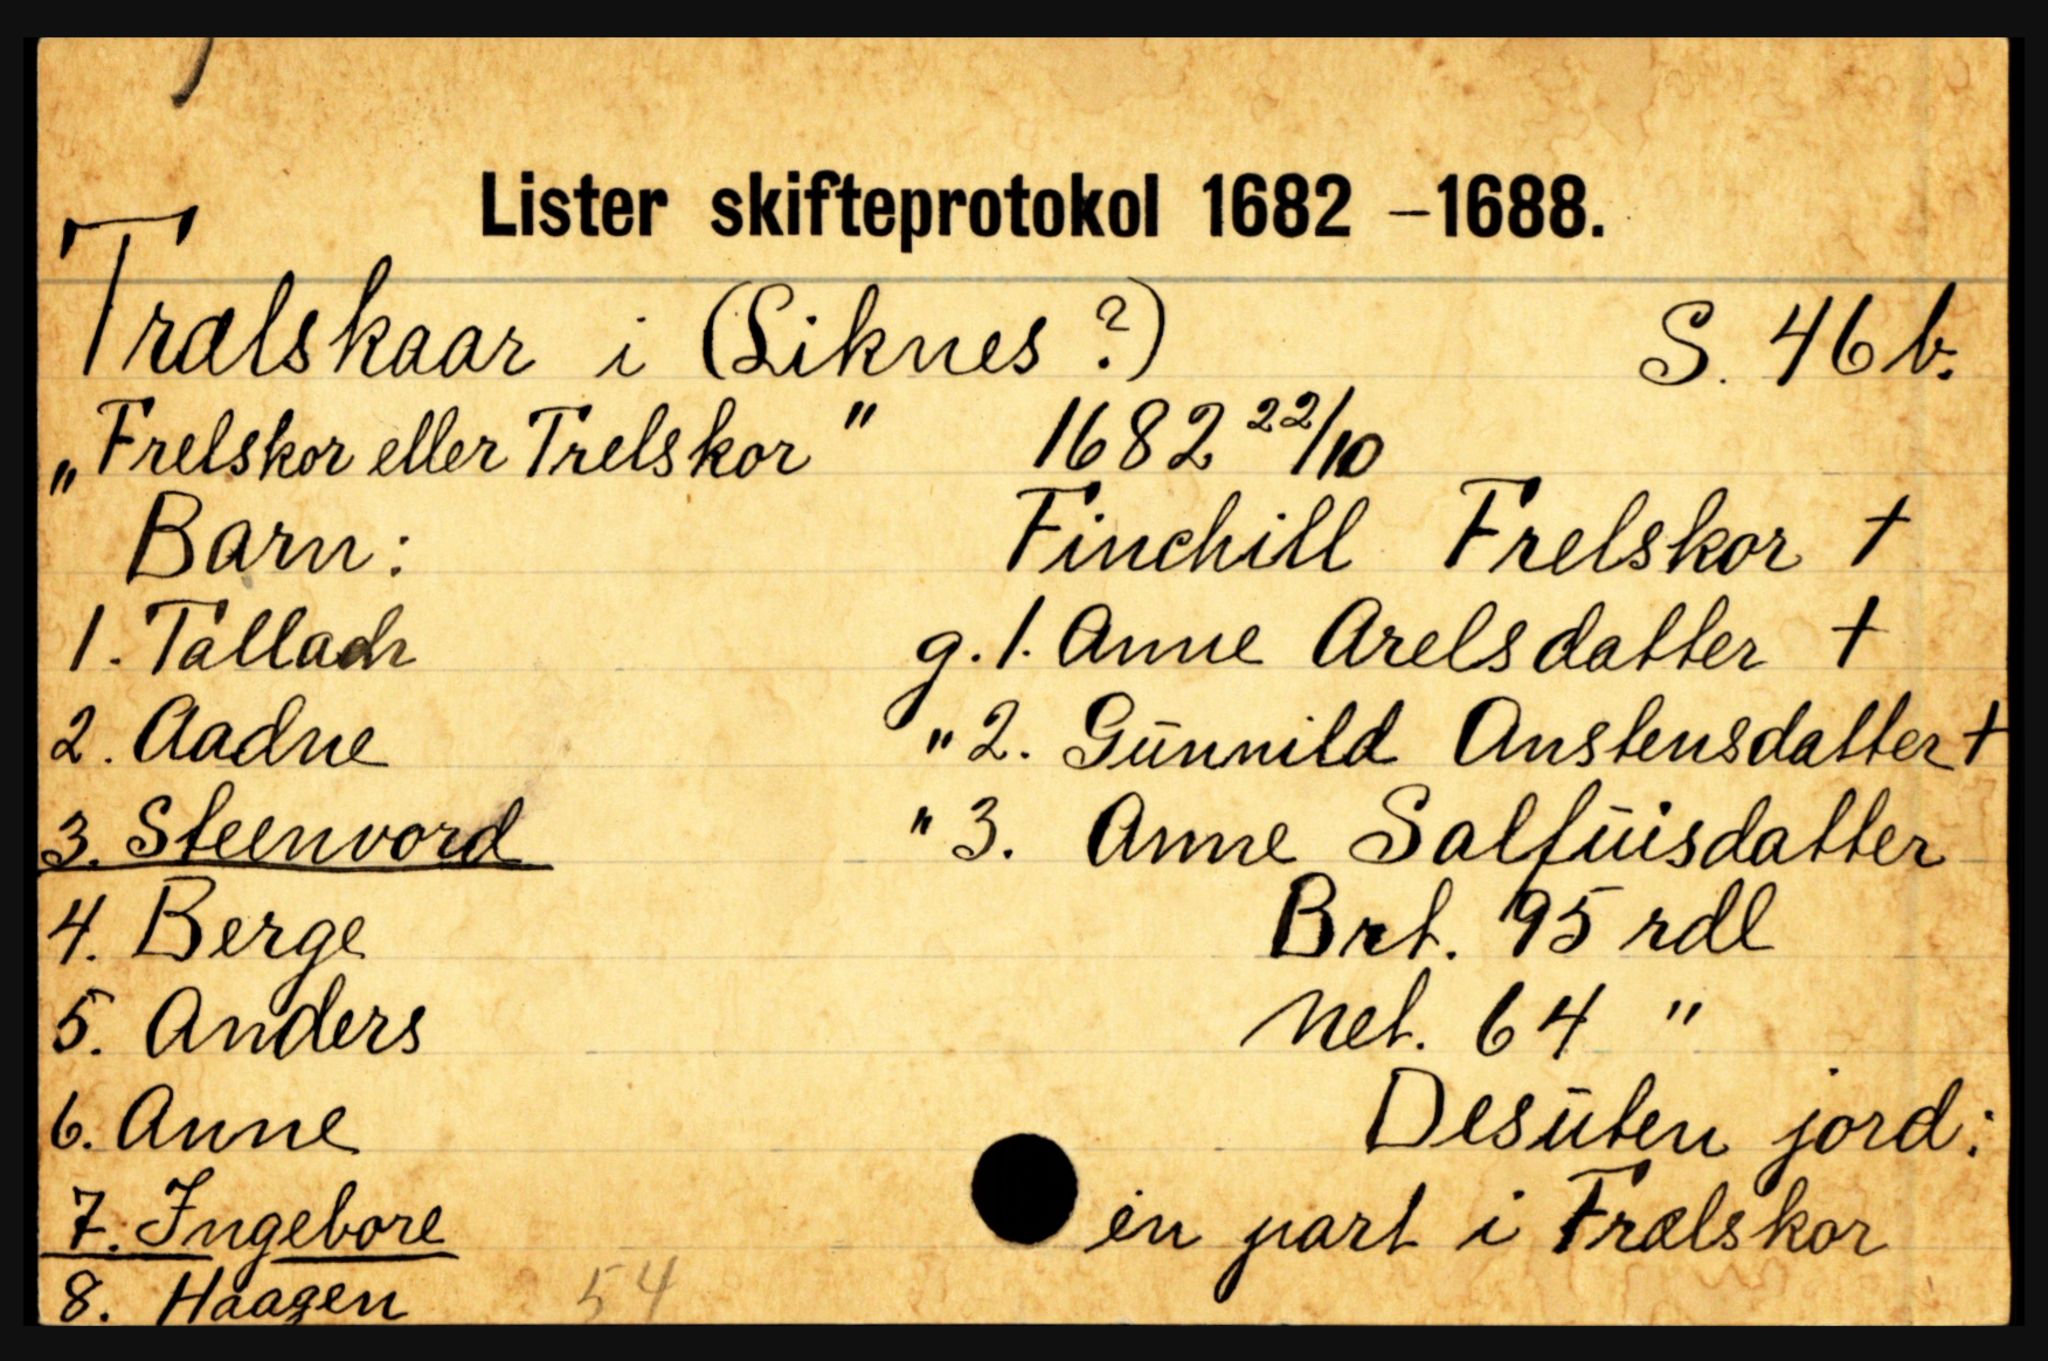 Lister skifteprotokol 1682 –1688.
Trælskaar i (Liknes ?) S. 46 b.
„Frelskor eller Trelskor" 1682 22/10
Barn: Finchill Frelskor †
1. Tallach g. 1. Anne Arelsdatter †
2. Aadne " 2. Gūnnild Anstensdatter †
3. Steenvord " 3. Anne Salfūisdatter
4. Berge Brt. 95 rdl
5. Anders Net. 64 "
6. Anne Desūten jord:
7. Ingebore en part i Frælskor
8. Haagen 54